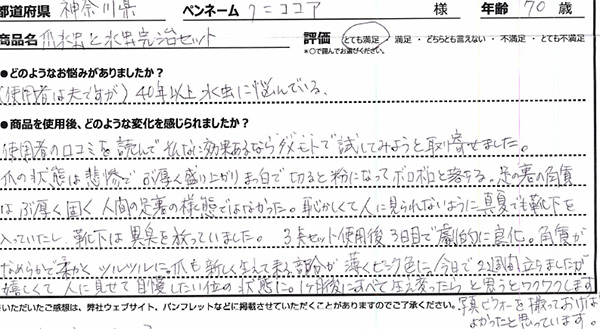 都道府県 神奈川県 ペンネーム クニココア 様 年齢 70 歳
商品名 爪水虫と水虫完治セット 評価 とても満足・満足・どちらとも言えない・不満足・とても不満足
*○で囲んでお選びください。
●どのようなお悩みがありましたか？
(使用者は夫ですが) 40年以上水虫に悩んでいる。
●商品を使用後、どのような変化を感じられましたか？
使用者の口コミを読んで こんなに効果あるならダメモトで試してみようと取り寄せました。
爪の状態は悲惨で ぶ厚く盛り上がりま白で切ると粉になってボロボロと落ちる。足の裏の角質
はぶ厚く固く 人間の足裏の様態ではなかった。恥かしくて人に見られないように真夏でも靴下を
入っていたし、靴下は異臭を放っていました。3点セット使用後3日目で劇的に変化。角質が
なめらかで柔かくツルツルに、爪も新しく生えて来る部分が薄くピンク色に 今日で2週間立ちましたが
嬉しくて人に見せて自慢したい位の状態に。1ヶ月後にすべて生え変ったらと思うとワクワクします
をいただいたご感想は、弊社ウェブサイト、パンフレットなどに掲載させていただくことがありますのでご了承ください。写真ビフォーを撮っておけば
よかったと思っています。